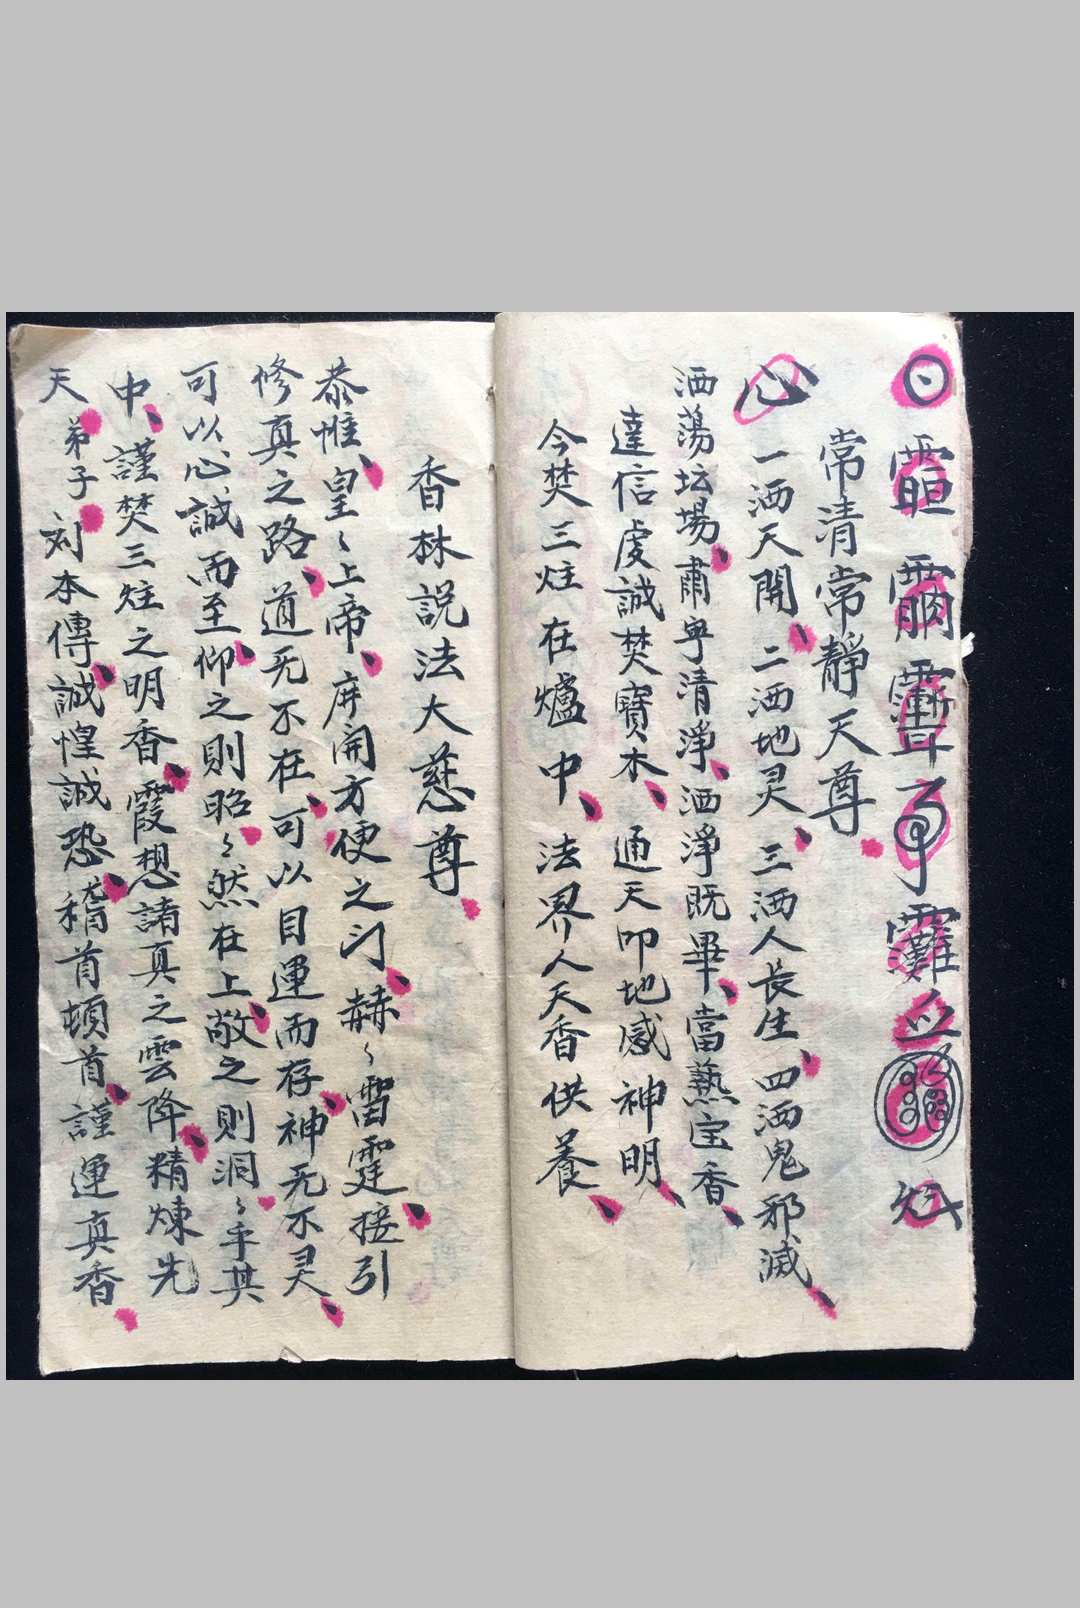 常清常靜天尊
心 一洒天開、二洒地灵、三洒人長生、四洒鬼邪滅、
洒蕩坛場、肅寧清淨、洒淨既畢、當熱宝香、
達信虔誠焚寶木、通天叩地感神明、
今焚三炷在爐中、法界人天香供養、
香林説法大慈尊
恭惟、皇〻上帝、屏開方便之门、赫〻雷霆、接引
修真之路、道无不在、可以目運而存、神无不灵、
可以心誠而至、仰之則昭〻然在上、敬之則洞〻乎其
中、謹焚三炷之明香、霞想諸真之雲降、精煉先
天 弟子刘本傳、誠惶誠恐、稽首頓首、謹運真香